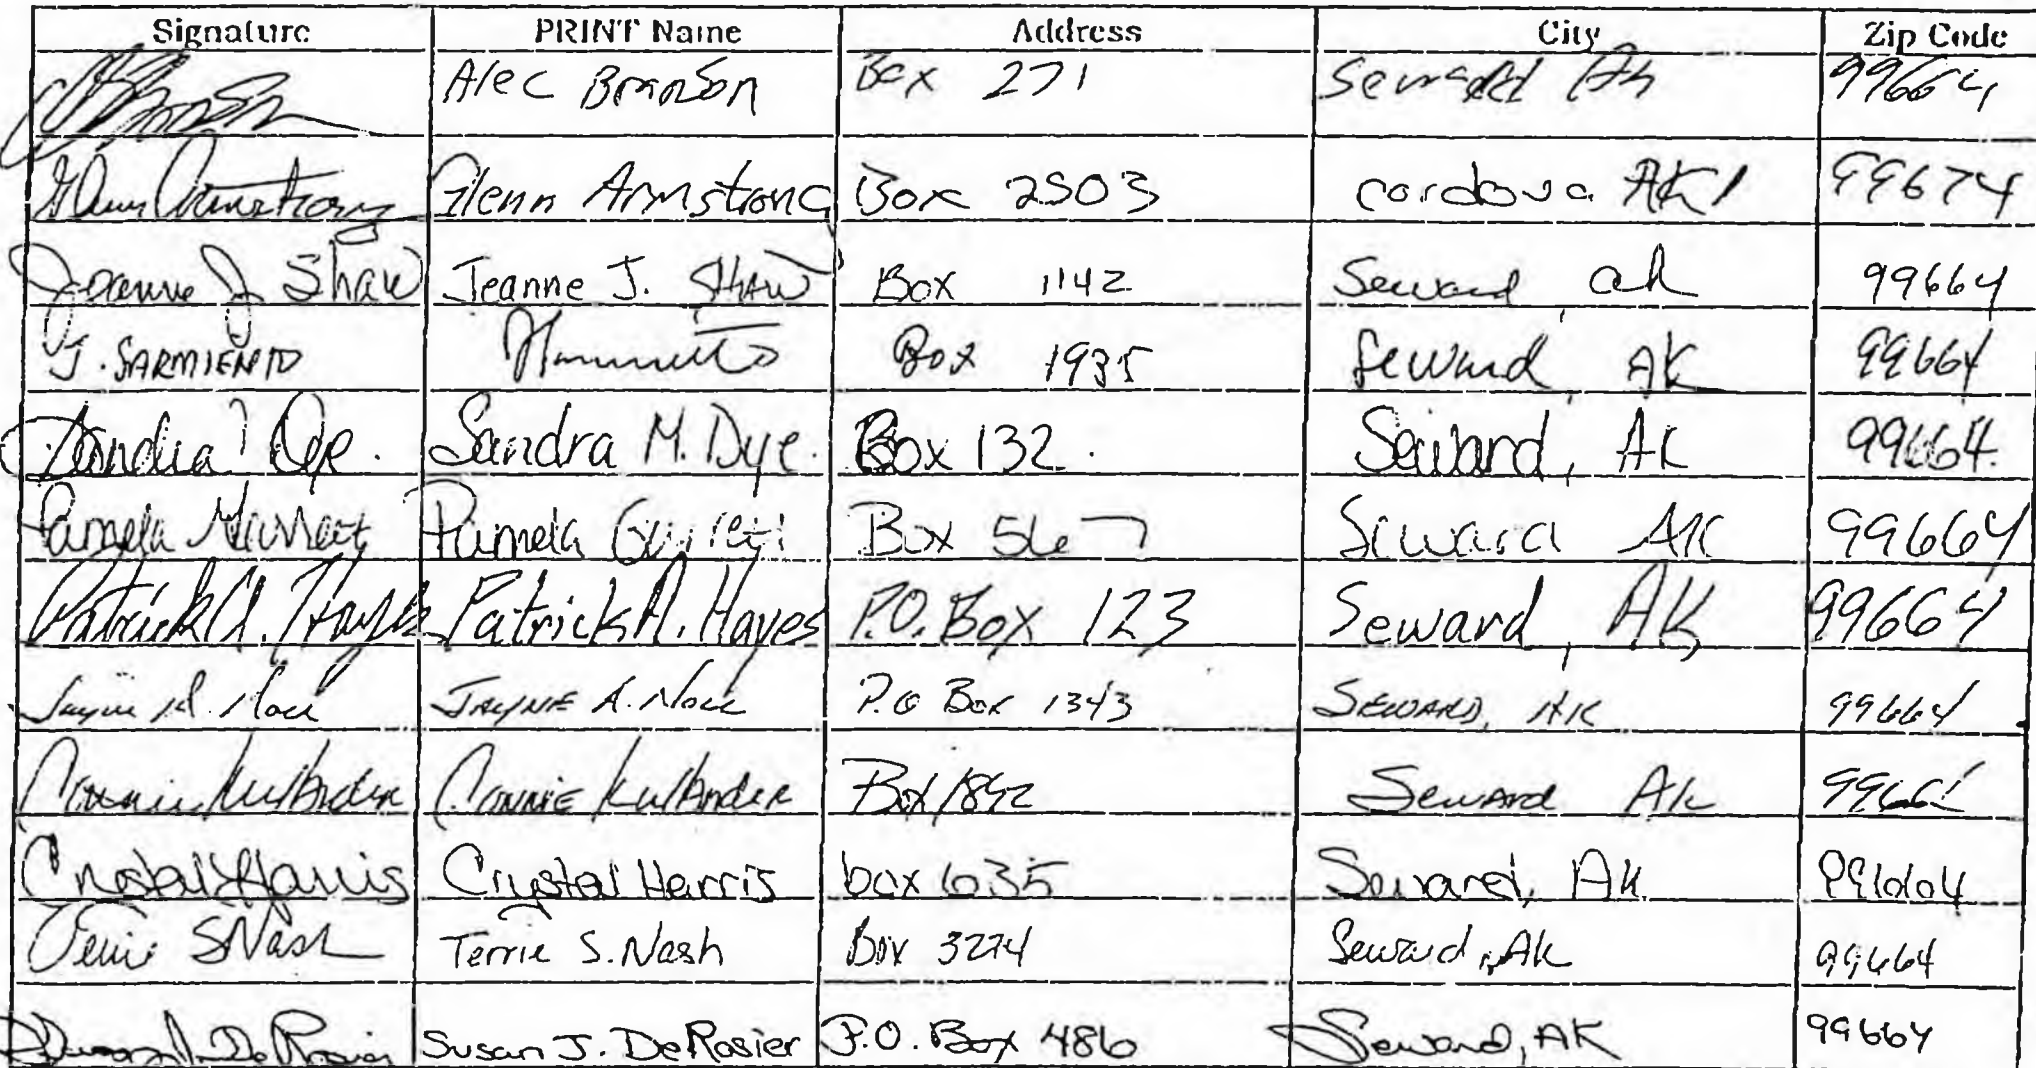 Signature PRINT Name Address City Zip Code
Alec Branson Box 271 Seward Ak 99664
Glenn Armstrong Glenn Armstrong Box 2503 cordova AK 99674
Jeanne J Shaw Jeanne J. Shaw Box 1142 Seward ak 99664
J. SARMIENTO Box 1935 Seward AK 99664
Sandra Dye. Sandra M. Dye. Box 132. Seward, AK 99664.
Pamela Garrett Pamela Garrett Box 567 Seward AK 99664
Patrick A. Hayes Patrick A. Hayes P.O. Box 123 Seward, AK 99664
JAYNE A. P.O Box 1343 SEWARD, AK 99664
Connie Connie Box 1892 Seward Ak
Crystal Harris Crystal Harris box 635 Seward, AK 99664
Terrie S Nash Terrie S. Nash Box 3274 Seward, AK 99664
Susan J. DeRosier Susan J. DeRosier P.O. Box 486 Seward, AK 99664